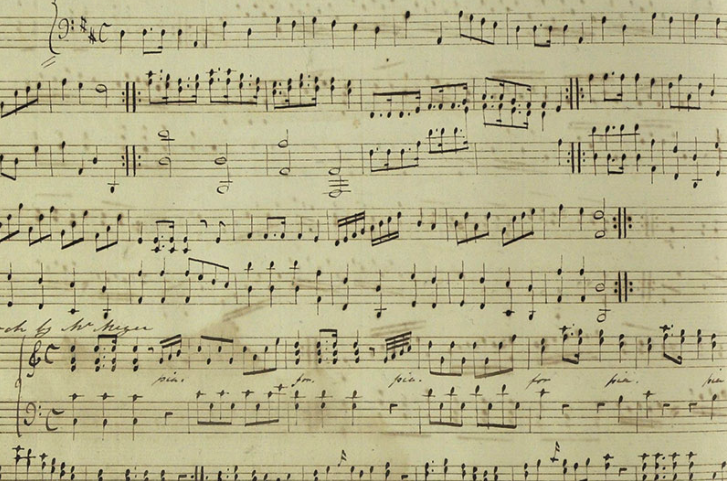 by Mr Meyer
pia. for. pia. for pia.